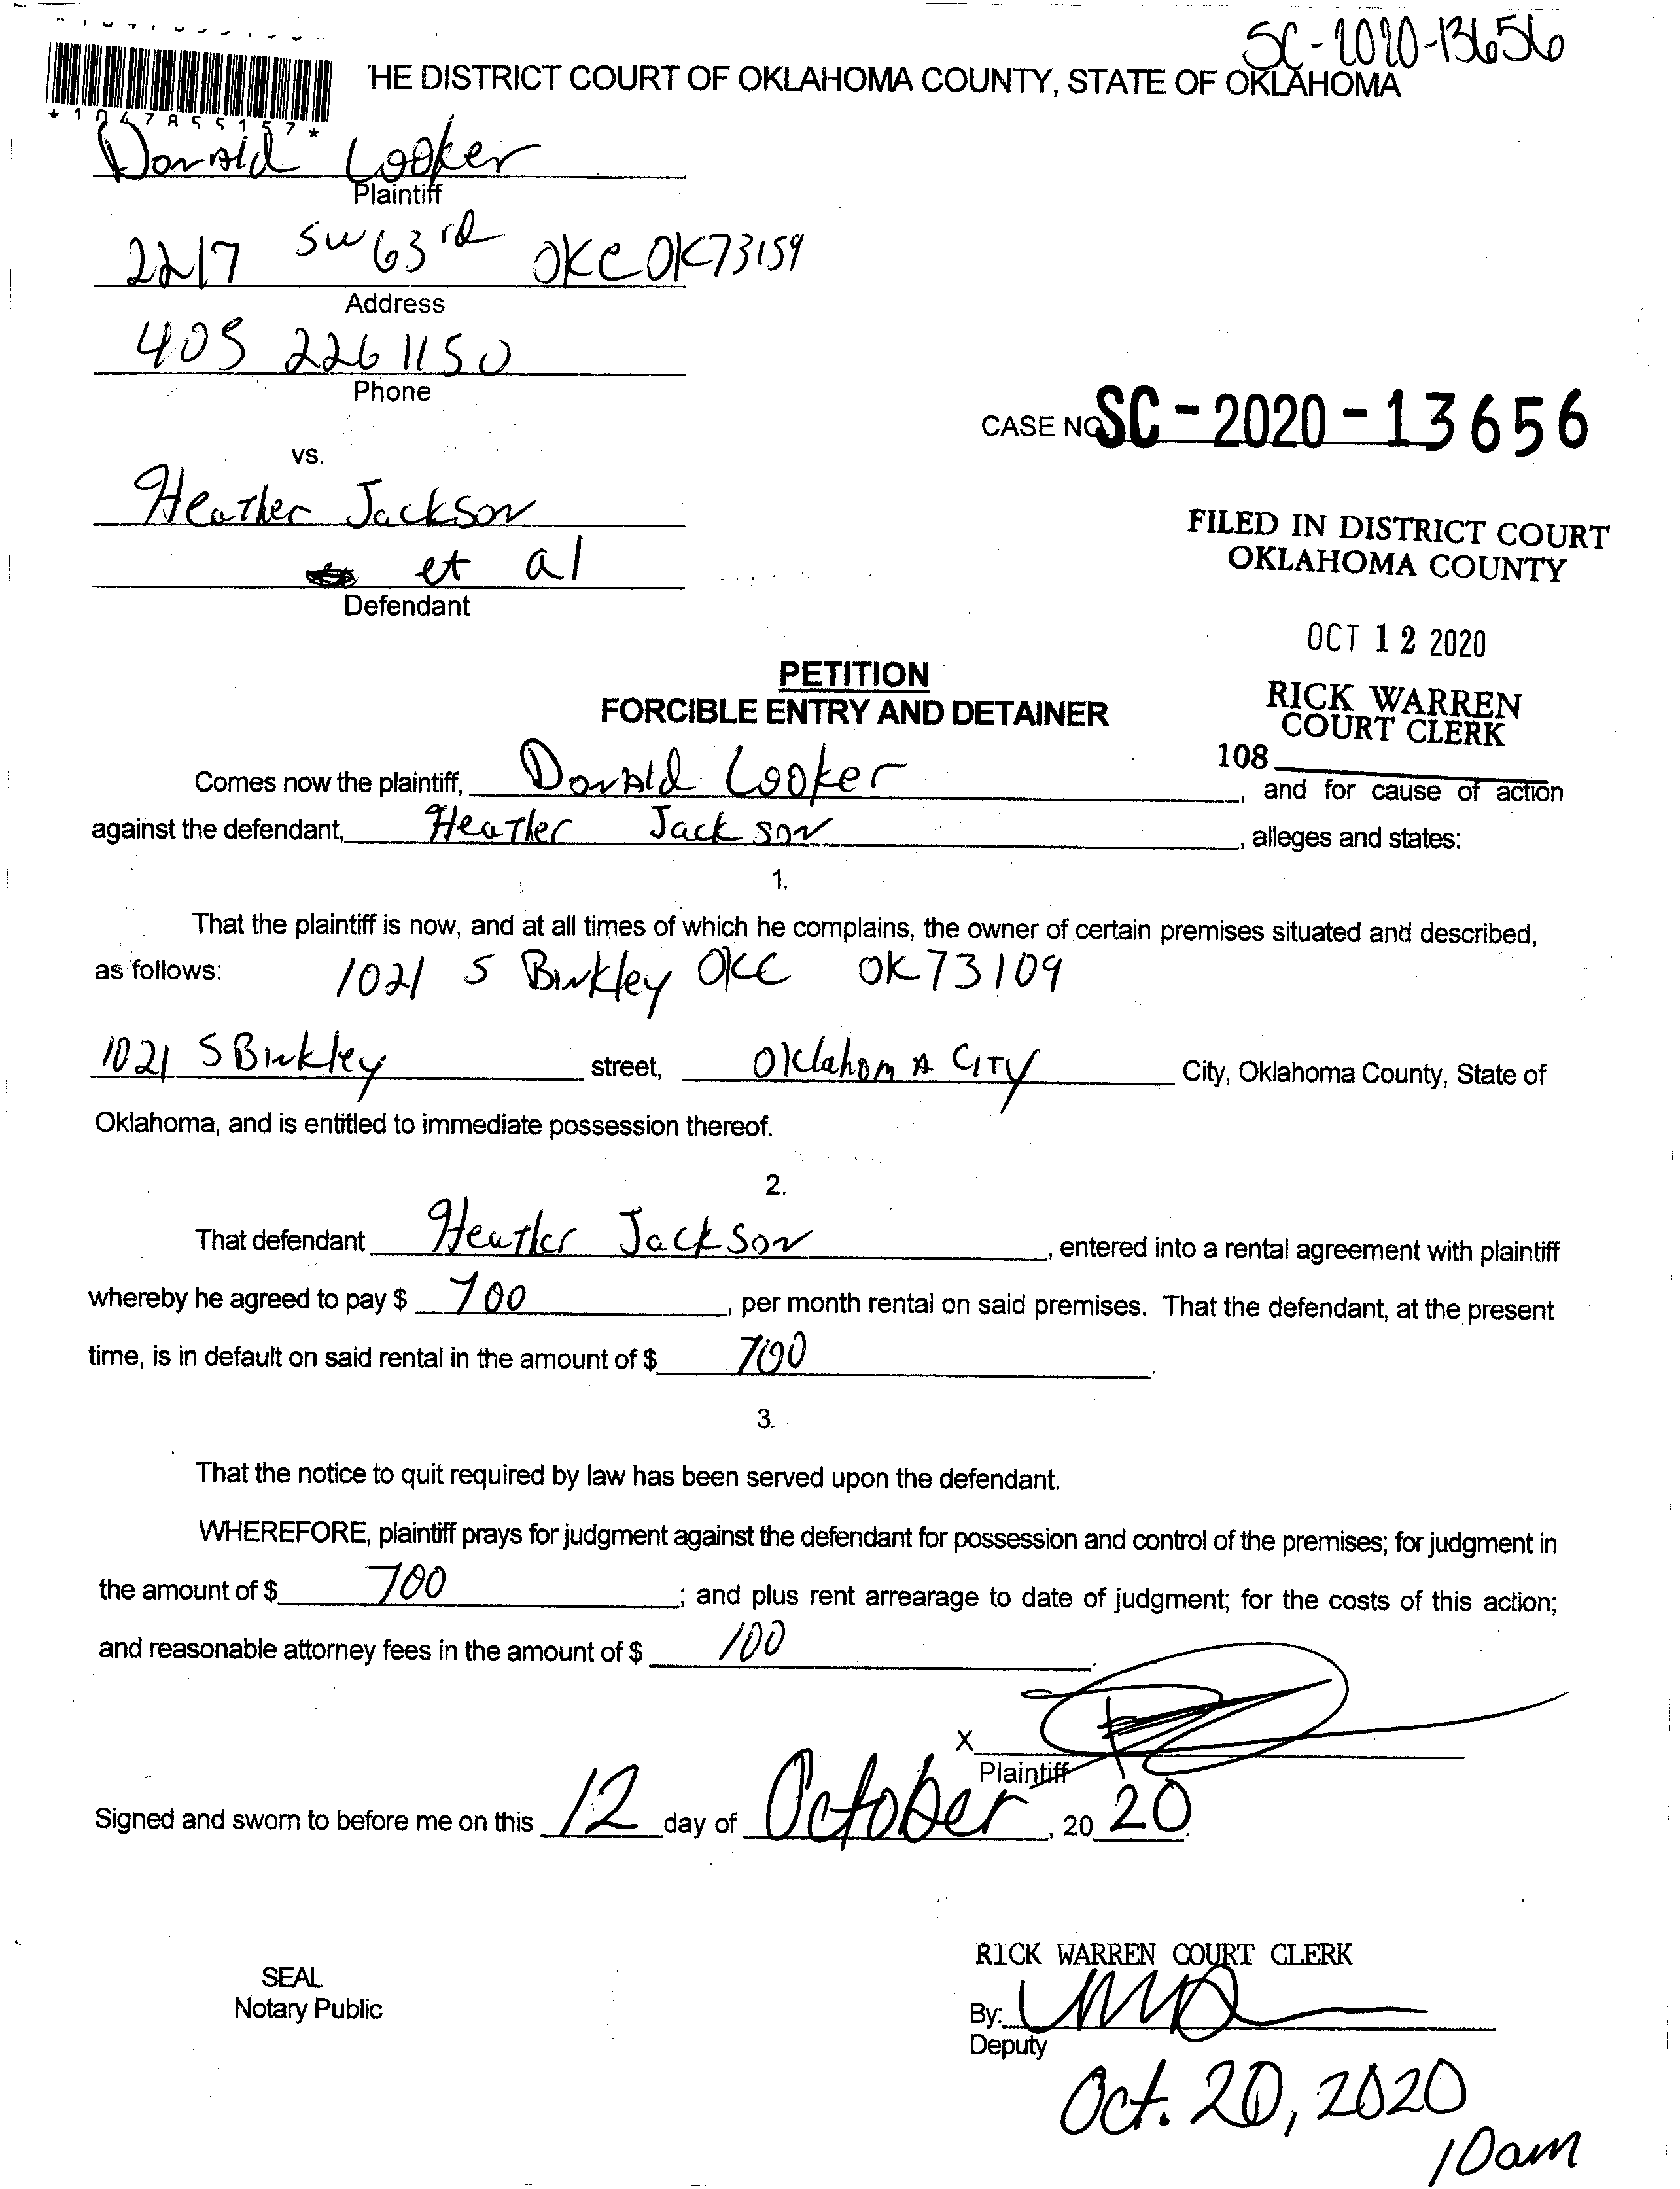 SC-2020-13656
HE DISTRICT COURT OF OKLAHOMA COUNTY, STATE OF OKLAHOMA
*1047855157*
Donald Looker
Plaintiff
2217 SW 63rd OKC OK 73159
Address
405 226 1150
Phone
CASE NO SC-2020-13656
vs.
Heather Jackson
et al
Defendant
FILED IN DISTRICT COURT
OKLAHOMA COUNTY
OCT 12 2020
RICK WARREN
COURT CLERK
108
PETITION
FORCIBLE ENTRY AND DETAINER
Comes now the plaintiff, Donald Looker, and for cause of action
against the defendant, Heather Jackson, alleges and states:
1.
That the plaintiff is now, and at all times of which he complains, the owner of certain premises situated and described,
as follows: 1021 S Binkley OKC OK 73109
1021 S Binkley street, Oklahoma City City, Oklahoma County, State of
Oklahoma, and is entitled to immediate possession thereof.
2.
That defendant Heather Jackson, entered into a rental agreement with plaintiff
whereby he agreed to pay $ 700, per month rental on said premises. That the defendant, at the present
time, is in default on said rental in the amount of $ 700.
3.
That the notice to quit required by law has been served upon the defendant.
WHEREFORE, plaintiff prays for judgment against the defendant for possession and control of the premises; for judgment in
the amount of $ 700; and plus rent arrearage to date of judgment; for the costs of this action;
and reasonable attorney fees in the amount of $ 100.
X
Plaintiff
Signed and sworn to before me on this 12 day of October, 20 20.
RICK WARREN COURT CLERK
SEAL
Notary Public
By:
Deputy
Oct. 20, 2020
10am